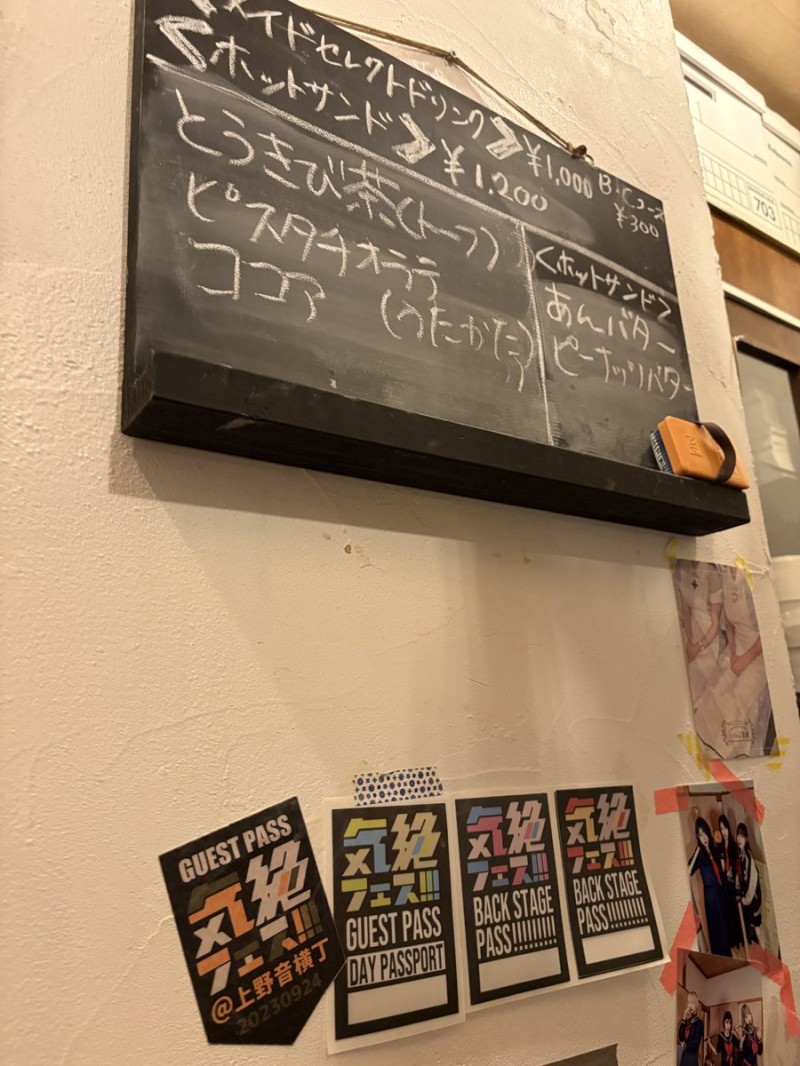 メイドセレクトドリンク》¥1,000
《ホットサンド》¥1,200
B・Cコース
¥300
とうきび茶(トーフ)
ピスタチオラテ
ココア (うたかた)
<ホットサンド>
あんバター
ピーナッツバター
703
GUEST PASS
気絶
フェス!!!
@上野音横丁
20230924
気絶
フェス!!!
GUEST PASS
DAY PASSPORT
気絶
フェス!!!
BACK STAGE
PASS!!!!!!!!!
気絶
フェス!!!
BACK STAGE
PASS!!!!!!!!!